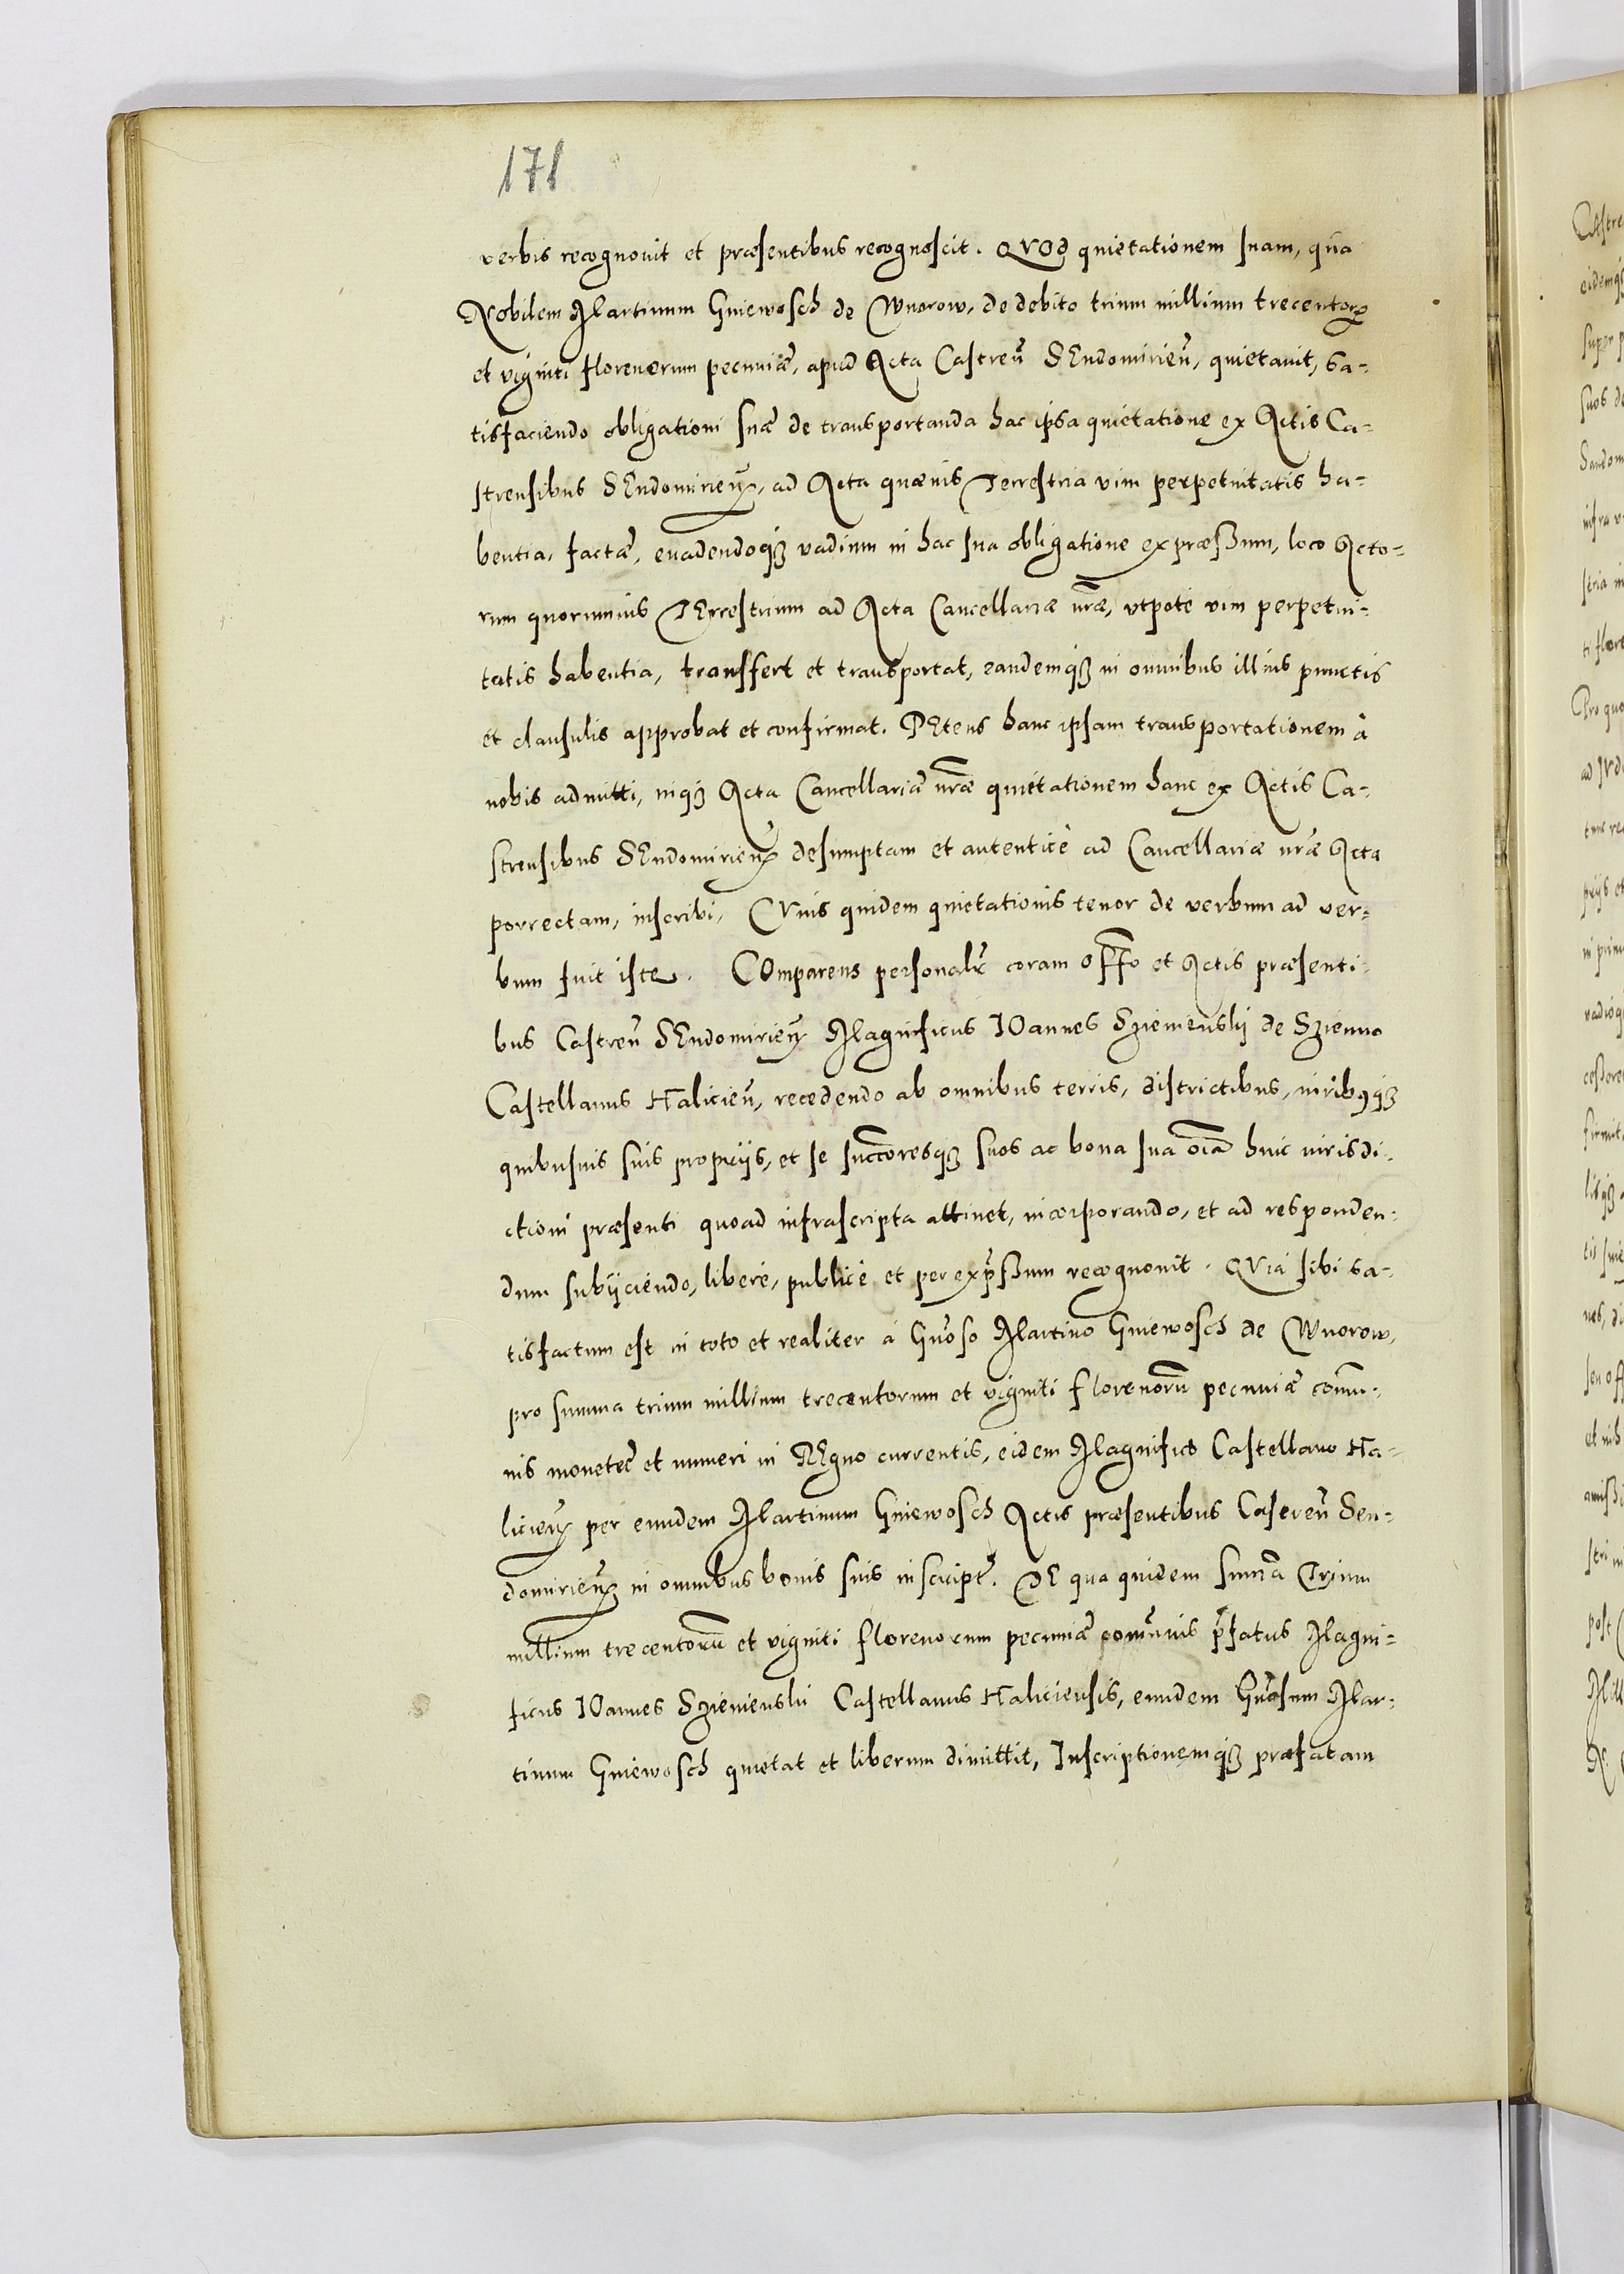 171
verbis recognouit et præsentibus recognoscit. QVOd quietationem suam, qua
Nobilem Martinum Gniewosch de Wnorow, de debito trium millium trecentorꝝ
et viginti florenorum pecuniæ, apud Acta Castreñ SEndomirieñ, quietauit, sa-
tisfaciendo obligationi suæ de transportanda hac ipsa quietatione ex Actis Ca-
strensibus SEndomirieñ, ad Acta quæuis Terrestria vim perpetuitatis ha-
bentia, factæ, euadendoqȝ vadium in hac sua obligatione expræssum, loco Acto-
rum quorumuis TErrestrium ad Acta Cancellariæ nr̃æ, vtpote vim perpetui-
tatis habentia, transfert et transportat, eandemqȝ in omnibus illius punctis
et clausulis approbat et confirmat. PEtens hanc ipsam transportationem à
nobis admitti, inqȝ Acta Cancellariæ nr̃æ quietationem hanc ex Actis Ca-
strensibus SEndomirieñ desumptam et autenticè ad Cancellariæ nr̃æ Acta
porrectam, inscribi, CVius quidem quietationis tenor de verbum ad ver-
bum fuit iste. COmparens personalr̃ coram offo et Actis præsenti-
bus Castreñ SEndomirieñ Magnificus IOannes Szienienskÿ de Szienno
Castellanus Halicieñ, recedendo ab omnibus terris, districtibus, iuribꝰqȝ
quibusuis suis proprijs, et se succoresqȝ suos ac bona sua oĩa huic iurisdi-
ctioni præsenti quoad infrascripta attinet, incorporando, et ad responden-
dum subijciendo, liberè, publicè et per exp̃ssum recognouit. QVia sibi sa-
tisfactum est in toto et realiter à Gnõso Martino Gniewosch de Wnorow,
pro summa trium millium trecentorum et viginti florenorũ pecuniæ com̃u-
nis monetæ et numeri in REgno currentis, eidem Magnifico Castellano Ha-
licieñ per eundem Martinum Gniewosch Actis præsentibus Castreñ Sen-
domirieñ in omnibus bonis suis inscript̃. DE qua quidem sum̃a Trium
millium trecentorũ et viginti florenorum pecuniæ com̃unis p̃fatus Magni-
ficus IOannes Szienienskii Castellanus Haliciensis, eundem Gnõsum Mar-
tinum Gniewosch quietat et liberum dimittit, Inscriptionemqȝ præfatam